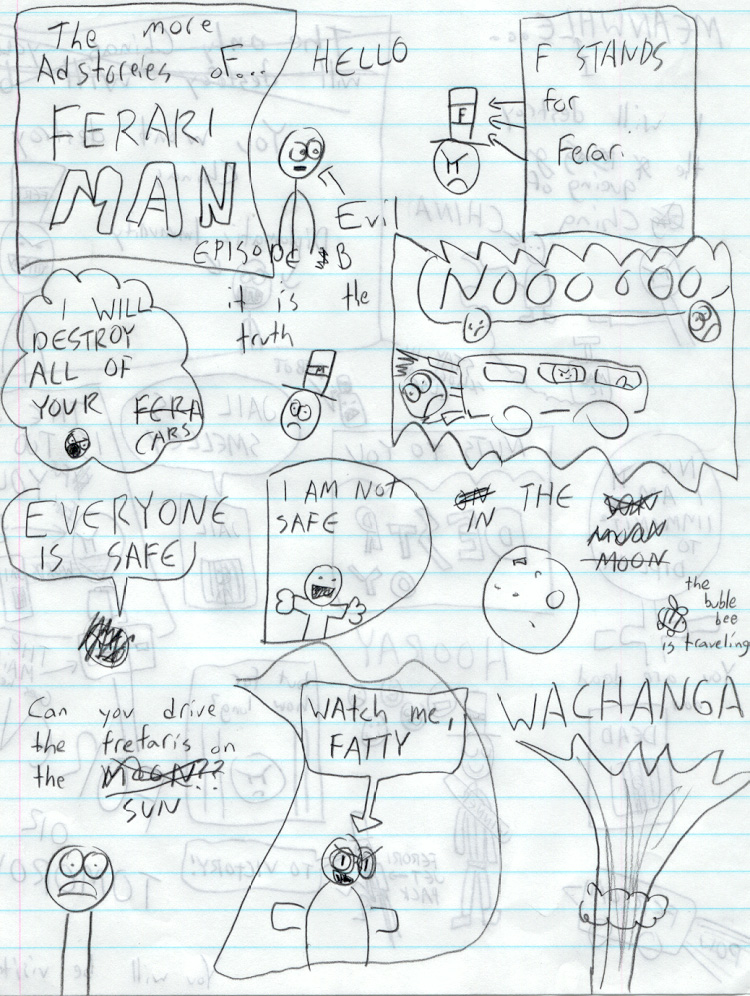 The more
Adstoreies of...
FERARI
MAN
EPISODE $B
HELLO
Evil
F STANDS
for
Ferari
F
I WILL
DESTROY
ALL OF
YOUR FERA
CARS
it is the
truth
NOOOOOO
EVERYONE
IS SAFE!
I AM NOT
SAFE
IN THE
MOON
the
buble
bee
is traveling
Can you drive
the fretaris on
the MOON??
SUN
Watch me,
FATTY
WACHANGA